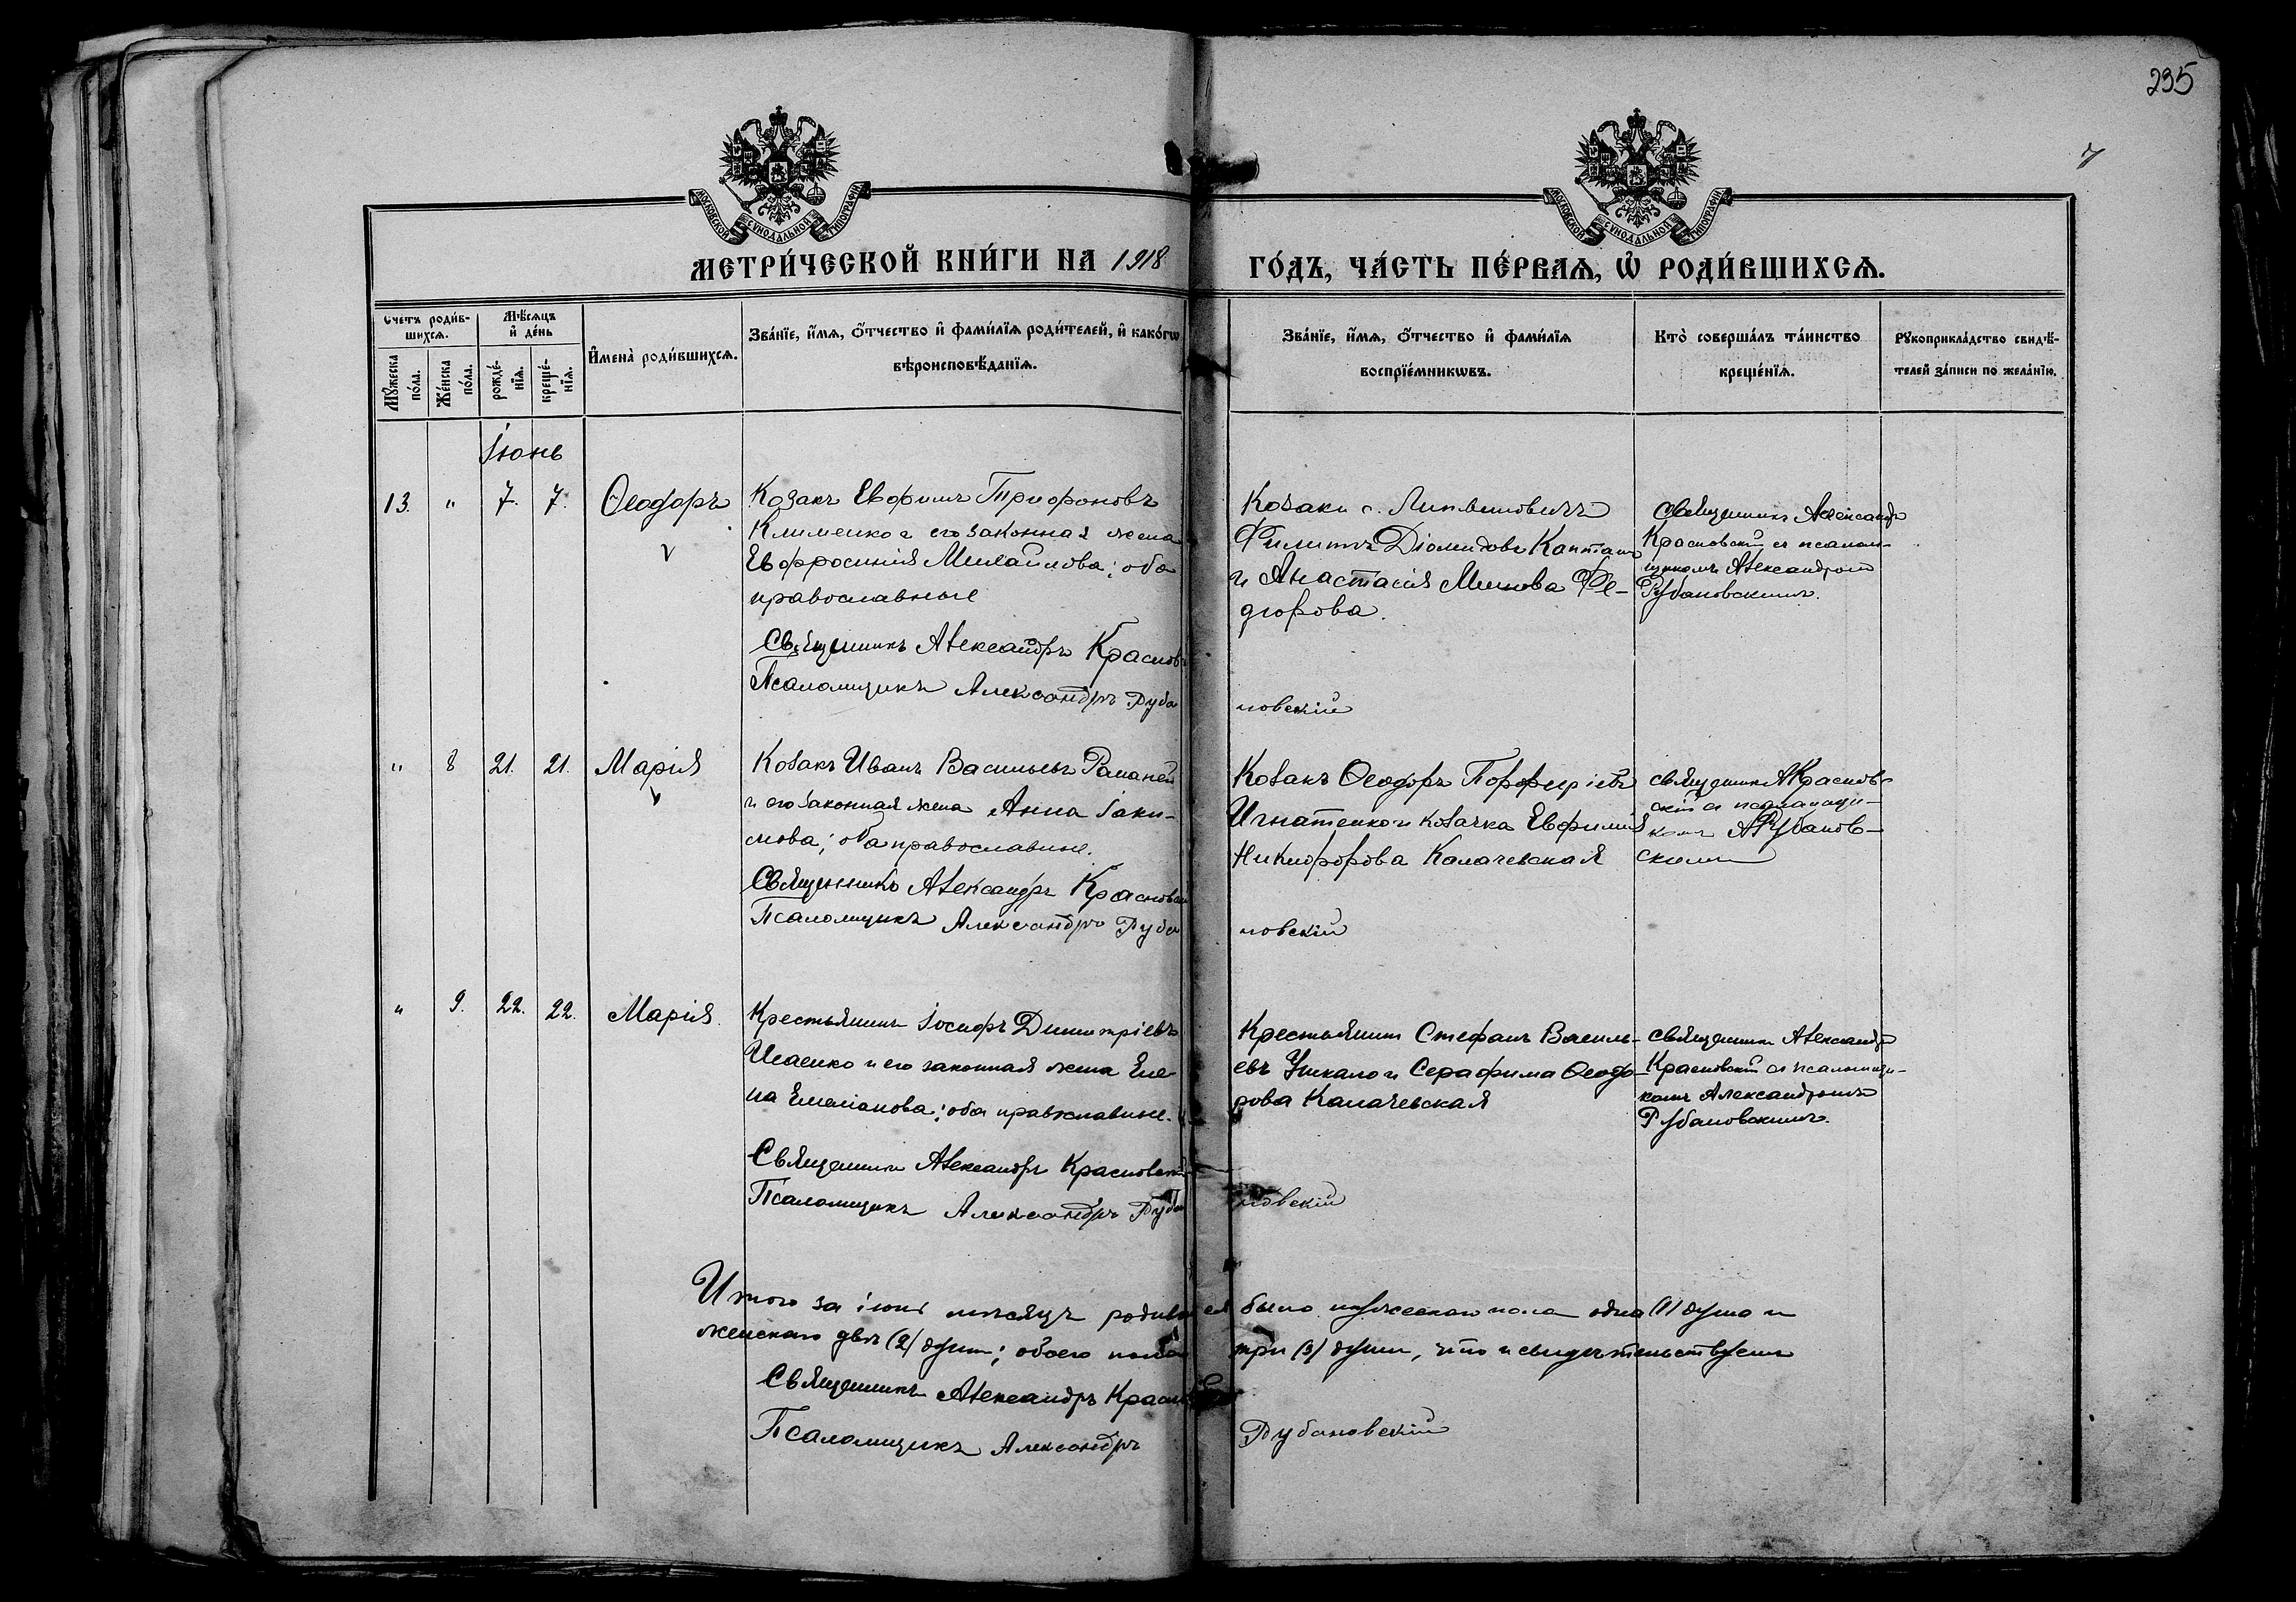 235
7
МОСКОВСКОЙ СУНОДАЛЬНОЙ ТИПОГРАФІИ
МОСКОВСКОЙ СУНОДАЛЬНОЙ ТИПОГРАФІИ
МЕТРИ́ЧЕСКОЙ КНИ́ГИ НА 1918 ГО́ДЪ, ЧА́СТЬ ПЕ́РВАѦ, Ѡ҆ РОДИ́ВШИХСѦ.
Счетъ роди́вшихсѧ.
Мꙋ́жеска по́ла.
Же́нска по́ла.
Мѣ́сѧцъ и҆ де́нь
рожде́нїѧ.
креще́нїѧ.
И҆мена̀ роди́вшихсѧ.
Зва́нїе, и҆́мѧ, ѻ҆́тчество и҆ фами́лїѧ роди́телей, и҆ како́гѡ
вѣроисповѣ́данїѧ.
Зва́нїе, и҆́мѧ, ѻ҆́тчество и҆ фами́лїѧ
воспрїе́мникѡвъ.
Кто̀ соверша́лъ та́инство
креще́нїѧ.
Рꙋкоприкла́дство свидѣ́-
телей за́писи по жела́нїю.
Іюнь
13. " 7. 7. Ѳеодоръ
Козакъ Евфимъ Трифоновъ
Клименко и его законная жена
Евфросинія Михайлова; оба
православные
Священникъ Александръ Красновскій
Псаломщикъ Александръ Рубановскій
Козаки с.
Филиппъ Діомидовъ
и Анастасія
Священникъ Александръ
Красновскій съ псалом-
щикомъ Александромъ
Рубановскимъ.
" 8 21. 21. Марія
Козакъ Иванъ Васильевъ
и его законная жена Анна Іаки-
мова; оба православные.
Священникъ Александръ Красновскій
Псаломщикъ Александръ Рубановскій
Козакъ Ѳеодоръ Порфиріевъ
Игнатенко и козачка Евфимія
Никифорова Калачевская
священникъ А Краснов-
скій съ псаломщи-
комъ А Рубанов-
скимъ
" 9. 22. 22. Марія.
Крестьянинъ Іосифъ Димитріевъ
Исаенко и его законная жена Еле-
на Емеліанова; оба православные.
Священникъ Александръ Красновскій
Псаломщикъ Александръ Рубановскій
Крестьянинъ Стефанъ Василь-
евъ Ушкало и Серафима Ѳеодо-
рова Калачевская
священникъ Александръ
Красновскій съ псаломщи-
комъ Александромъ
Рубановскимъ.
Итого за іюнь мѣсяцъ родившихся было мужескаго пола одна (1) душа и
женскаго двѣ (2) души; обоего пола три (3) души, что и свидѣтельствуемъ
Священникъ Александръ Красновскій
Псаломщикъ Александръ Рубановскій